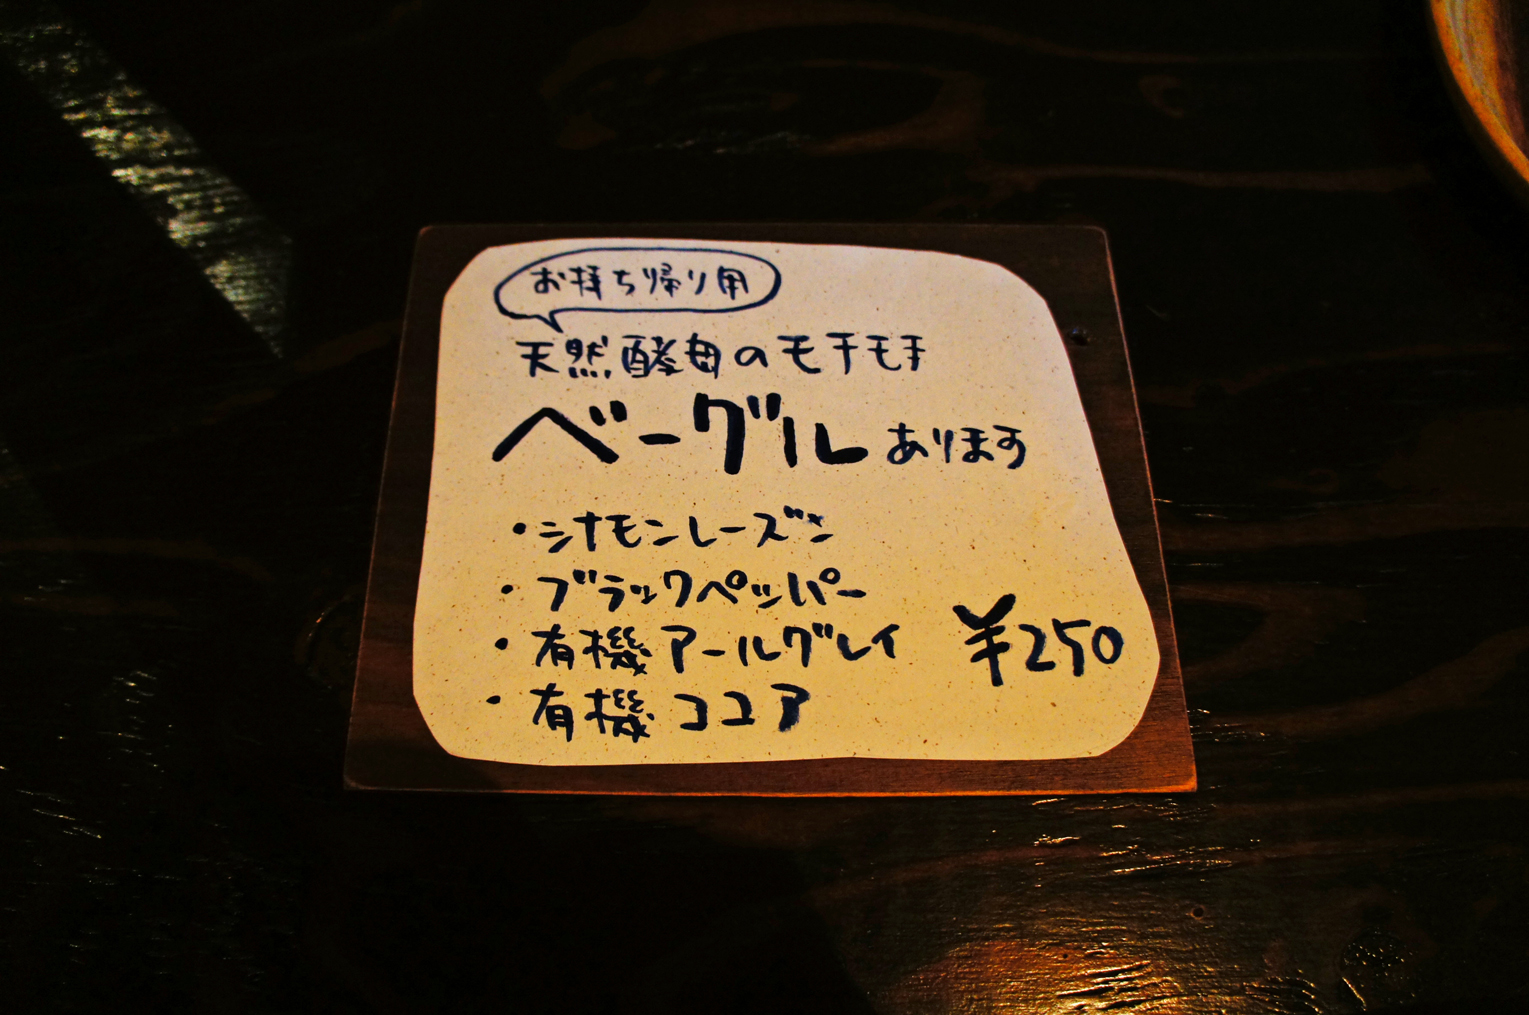 お持ち帰り用
天然酵母のモチモチ
ベーグルあります
・シナモンレーズン
・ブラックペッパー
・有機アールグレイ ¥250
・有機ココア